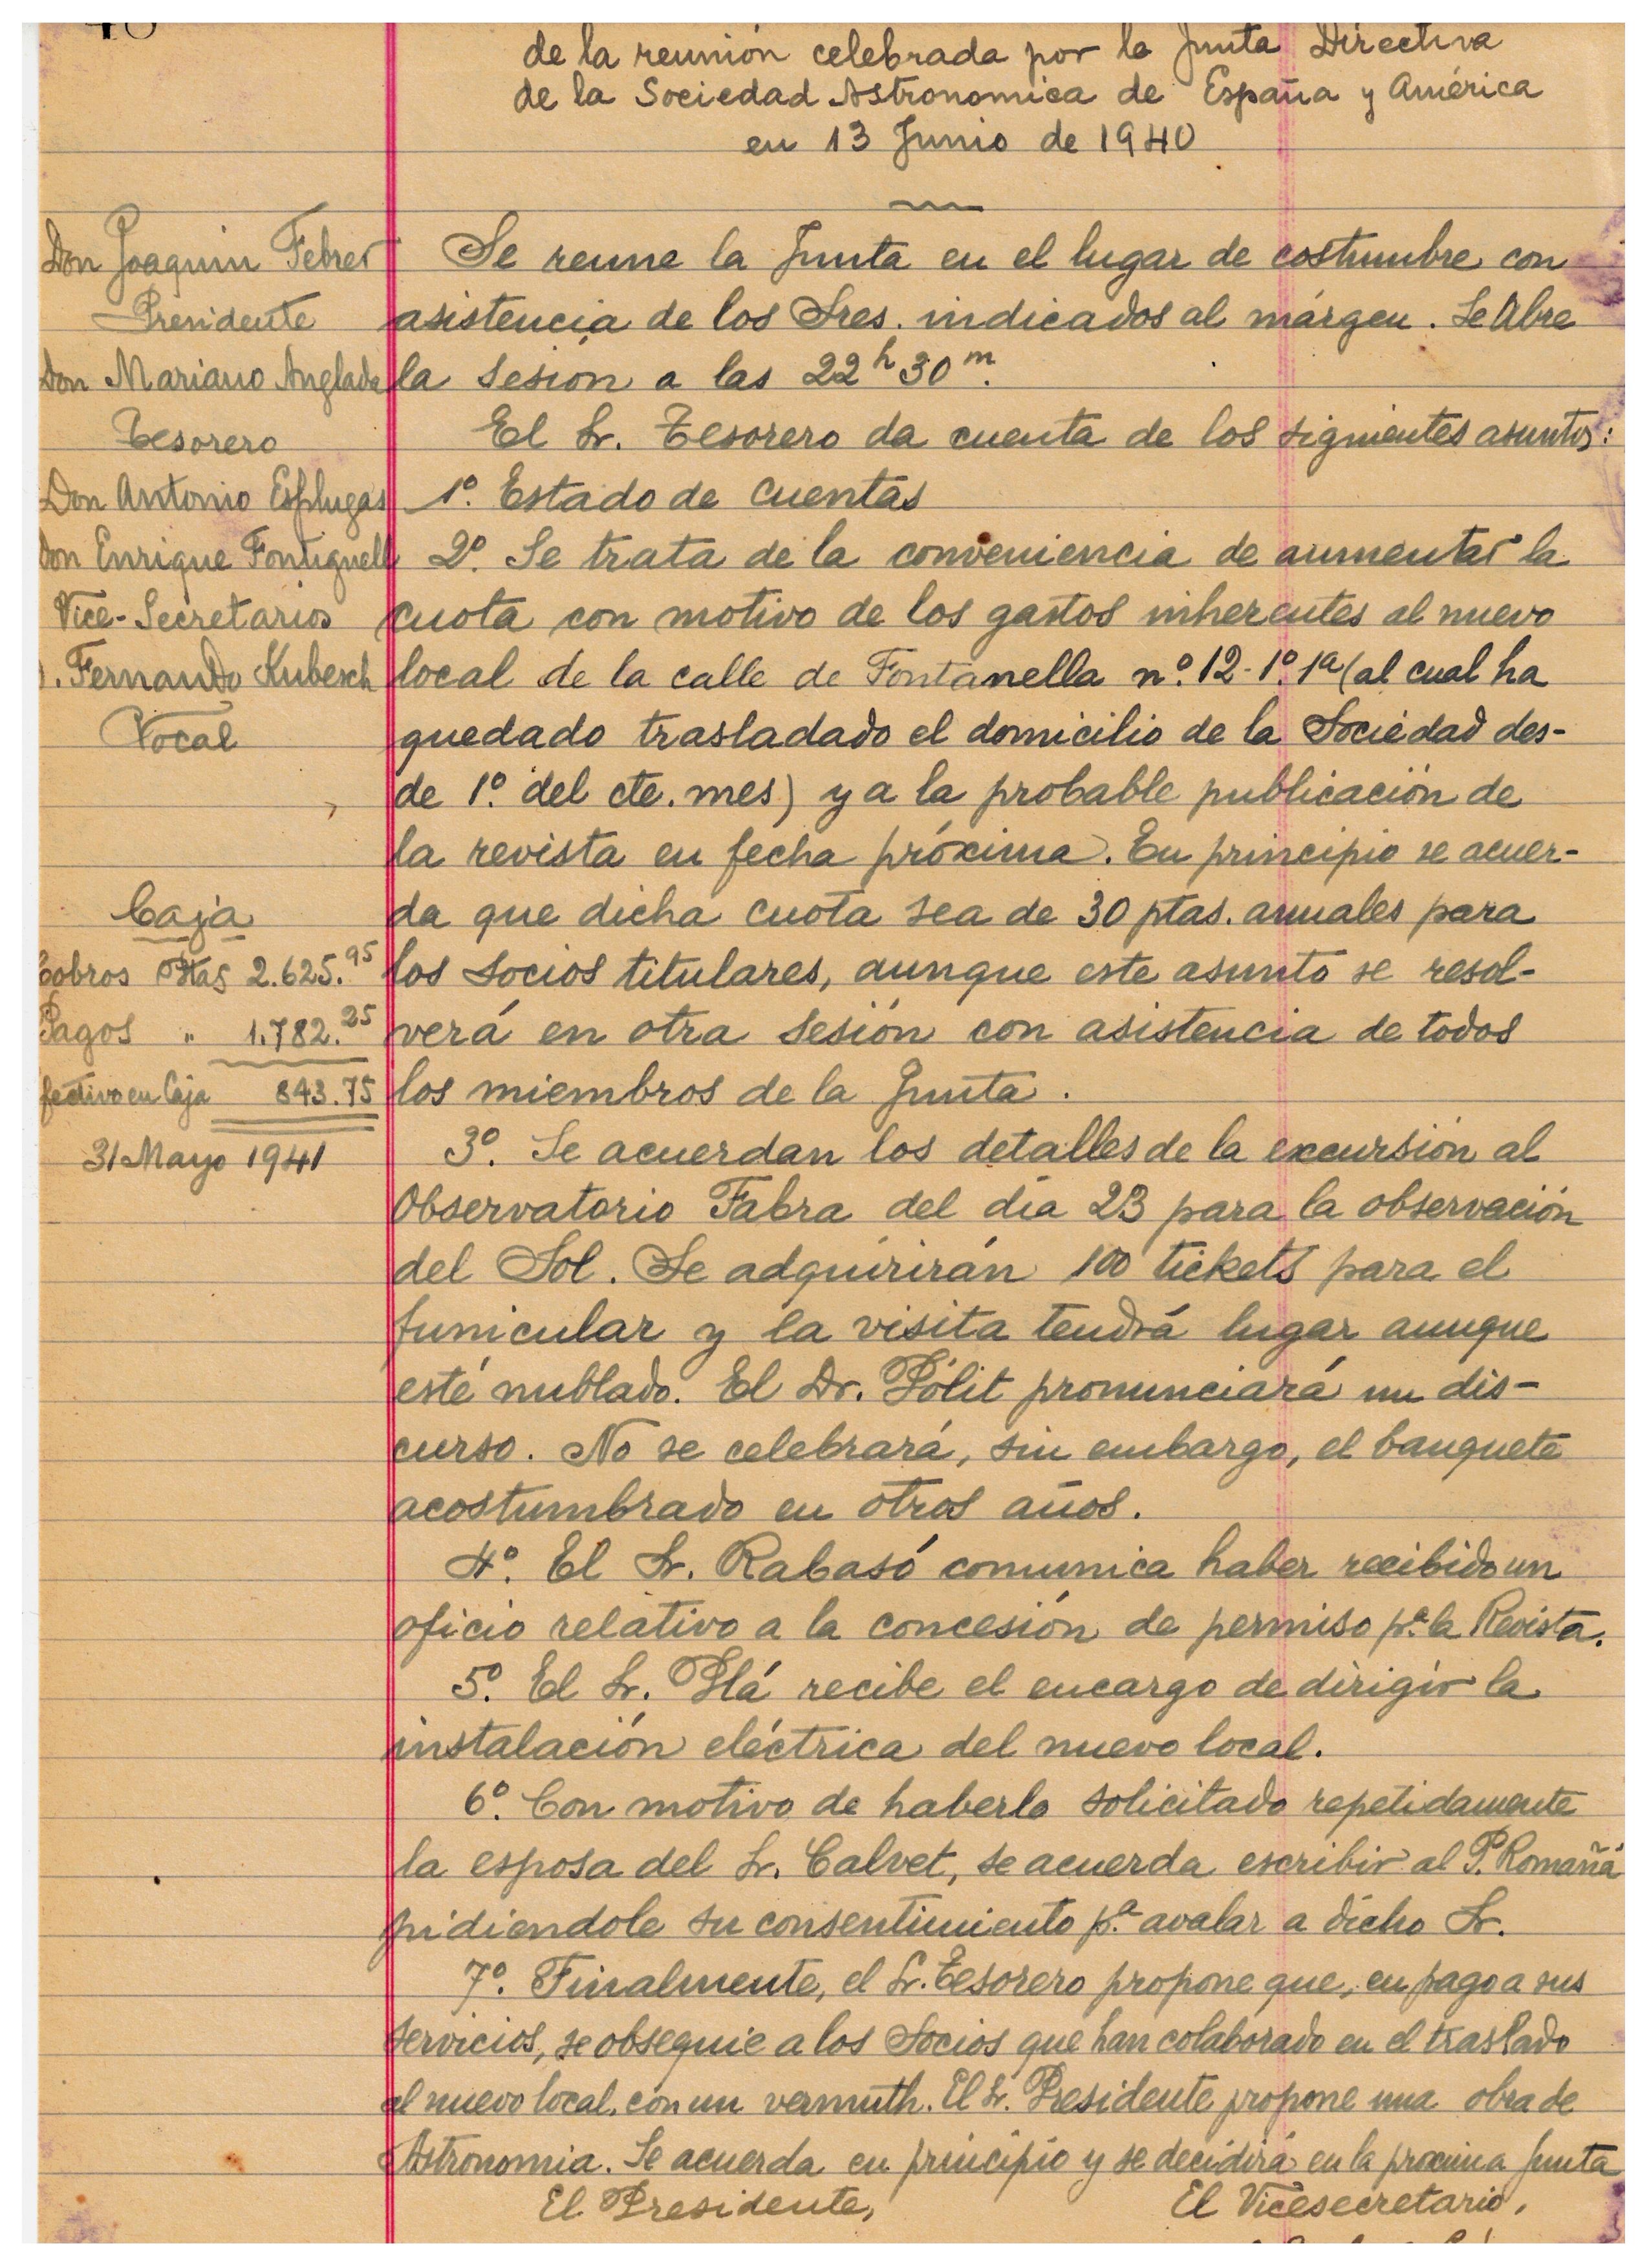 de la reunión celebrada por la Junta Directiva
de la Sociedad Astronomica de España y América
en 13 Junio de 1940
Don Joaquin Febrer
Presidente
Don Mariano Anglada
Tesorero
Don Antonio Esplugas
Don Enrique Fontiguell
Vice-Secretarios
. Fernando Kubesch
Vocal
Caja
Cobros Ptas 2.625.95
Pagos " 1.782.25
fectivo en Caja 843.75
31 Mayo 1941
Se reune la Junta en el lugar de costumbre con
asistencia de los Sres. indicados al márgen. Se Abre
la sesión a las 22h 30m.
El Sr. Tesorero da cuenta de los siguientes asuntos:
1º. Estado de cuentas
2º. Se trata de la conveniencia de aumentar la
cuota con motivo de los gastos inherentes al nuevo
local de la calle de Fontanella nº. 12-1º. 1ª (al cual ha
quedado trasladado el domicilio de la Sociedad des-
de 1º. del cte. mes) y a la probable publicación de
la revista en fecha próxima. En principio se acuer-
da que dicha cuota sea de 30 ptas. anuales para
los socios titulares, aunque este asunto se resol-
verá en otra sesión con asistencia de todos
los miembros de la Junta.
3º. Se acuerdan los detalles de la excursión al
Observatorio Fabra del día 23 para la observación
del Sol. Se adquirirán 100 tickets para el
funicular y la visita tendrá lugar aunque
esté nublado. El Dr. Pólit pronunciará un dis-
curso. No se celebrará, sin embargo, el banquete
acostumbrado en otros años.
4º. El Sr. Rabasó comunica haber recibido un
oficio relativo a la concesión de permiso pª. la Revista.
5º. El Sr. Plá recibe el encargo de dirigir la
instalación eléctrica del nuevo local.
6º. Con motivo de haberlo solicitado repetidamente
la esposa del Sr. Calvet, se acuerda escribir al P. Romañá
pidiendole su consentimiento pª. avalar a dicho Sr.
7º. Finalmente, el Sr. Tesorero propone que, en pago a sus
servicios, se obsequie a los Socios que han colaborado en el traslado
al nuevo local, con un vermuth. El Sr. Presidente propone una obra de
Astronomia. Se acuerda en principio y se decidirá en la proxima Junta
El Presidente, El Vicesecretario,